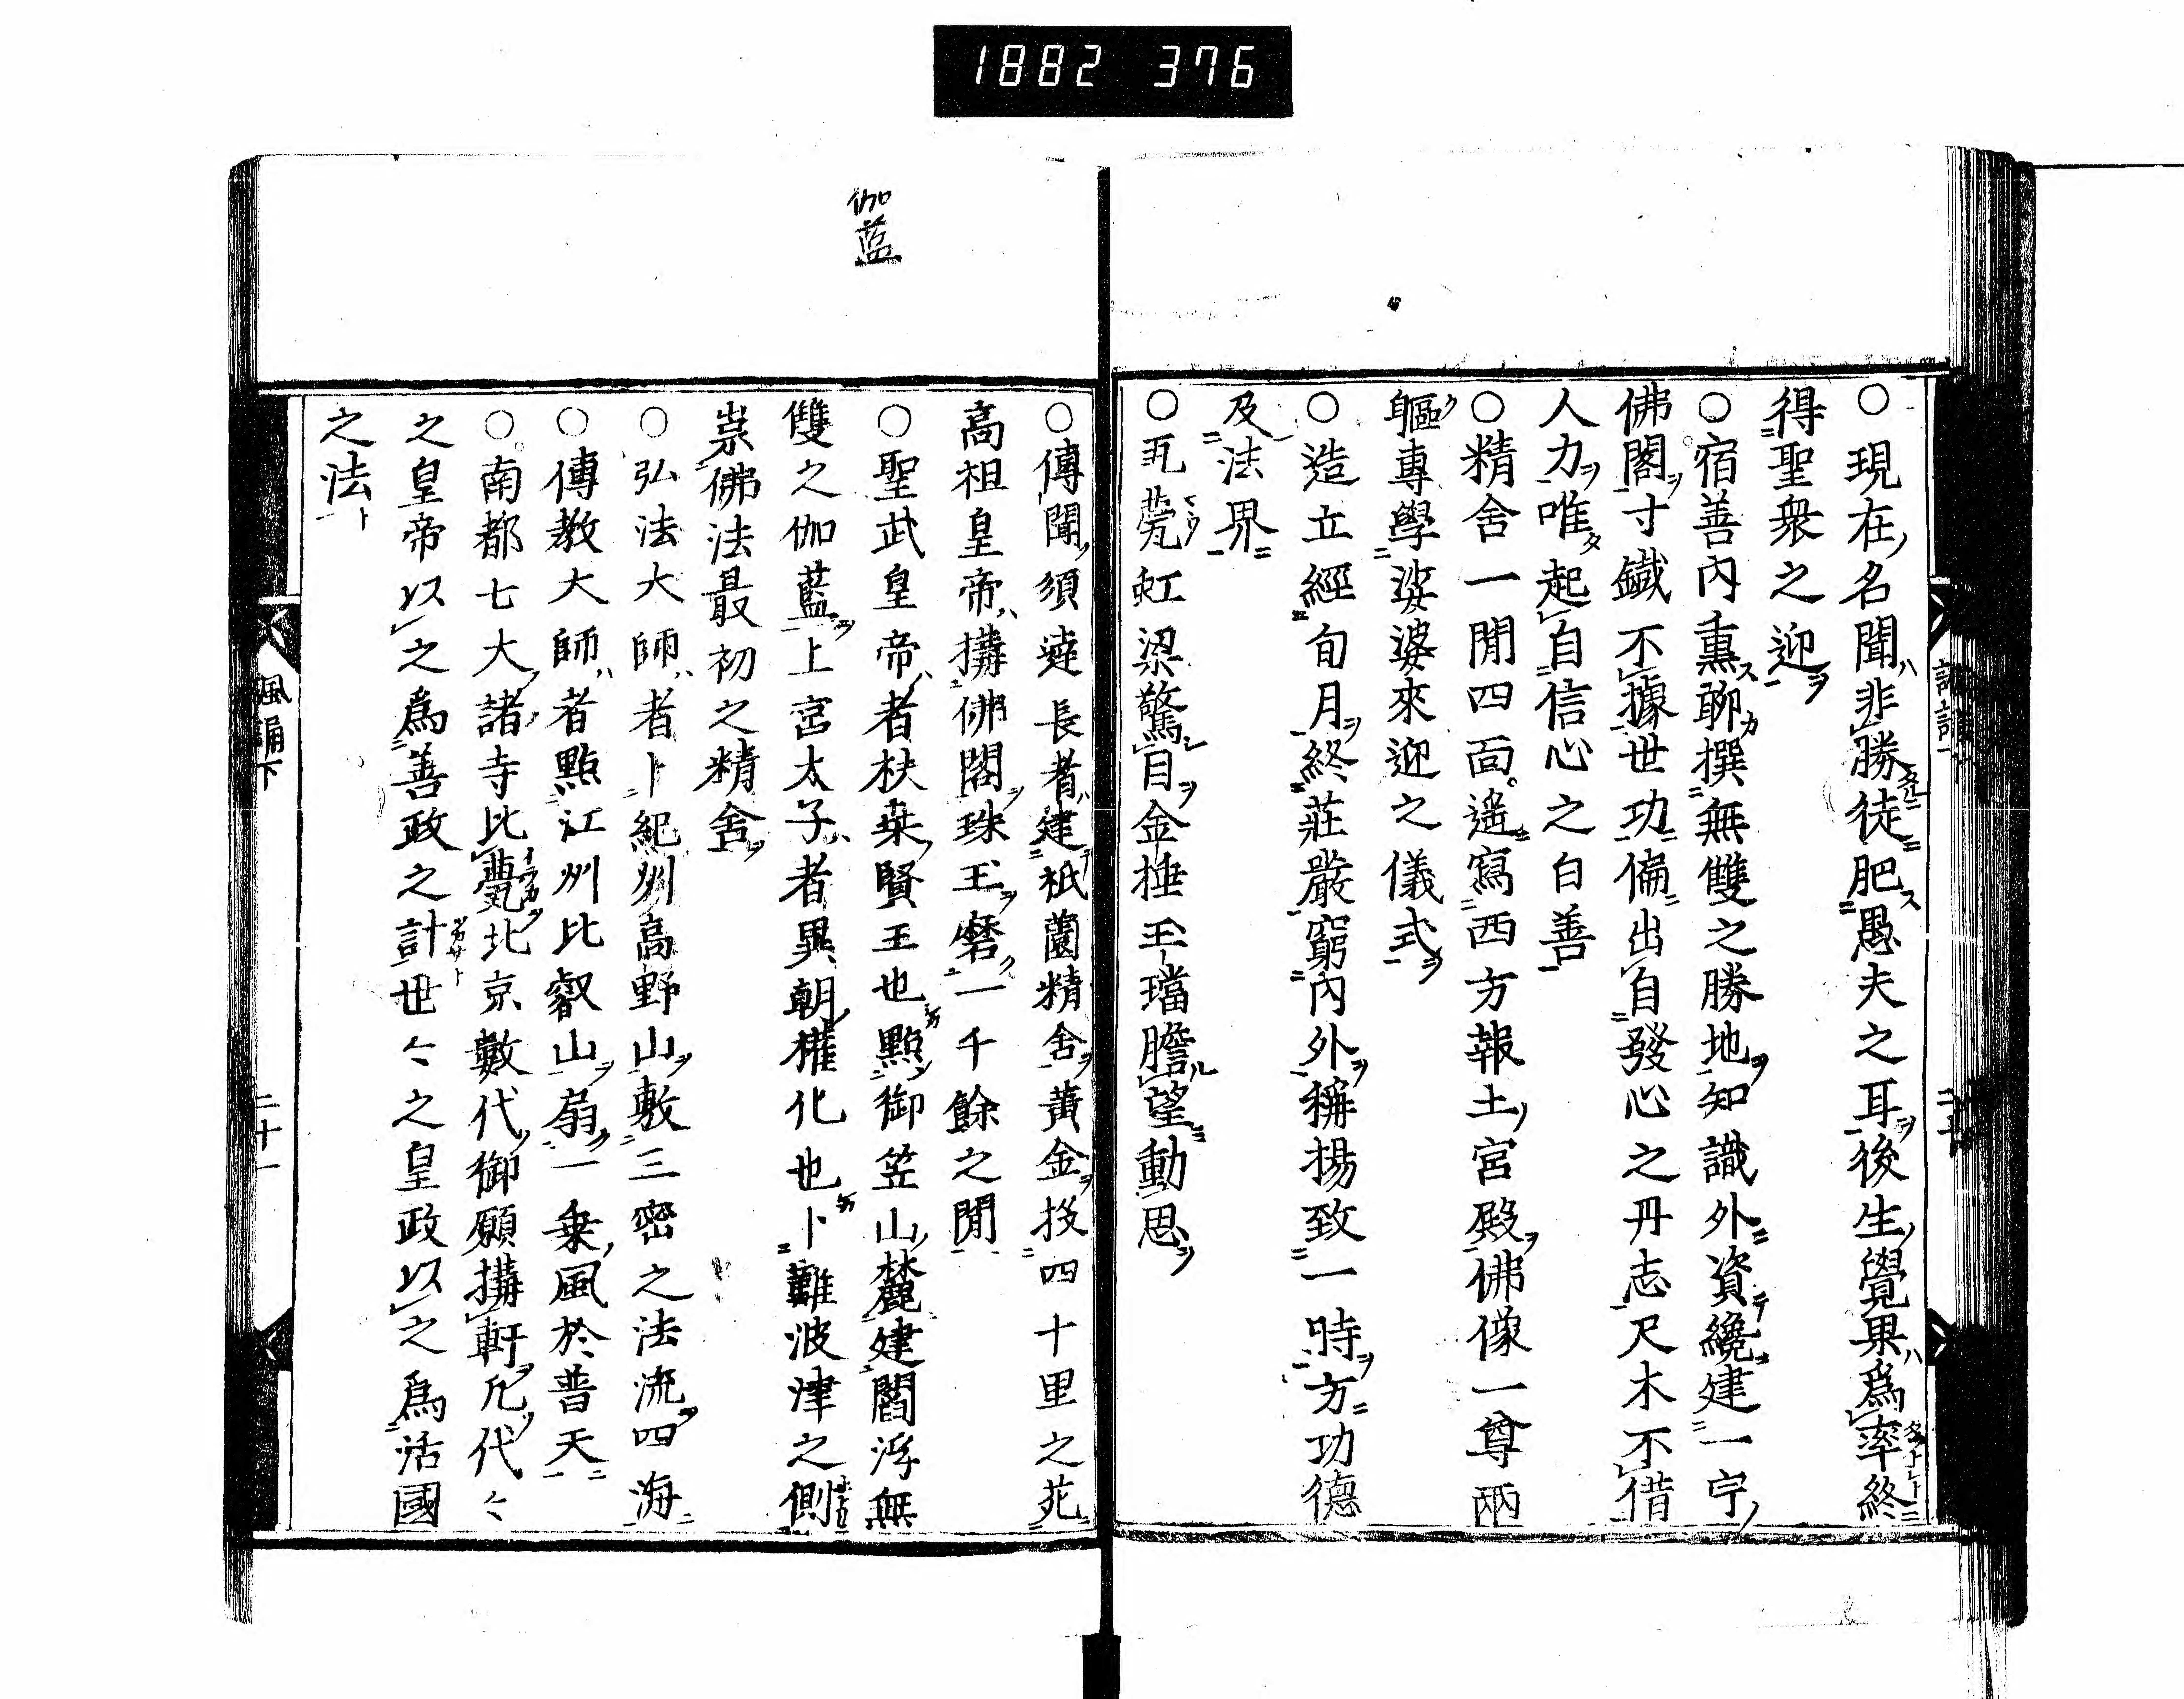 1882 376
○現在名聞非勝徒肥愚夫之耳後生覺果爲率終
得聖衆之迎
○宿善内熏聊撰無雙之勝地知識外資纔建一宇
佛閣寸鐵不據世功偏出自發心之丹志尺木不借
人力唯起自信心之白善
○精舍一閒四面遙寫西方報土宮殿佛像一尊兩
軀專學娑婆來迎之儀式
○造立經旬月終莊嚴窮内外稱揚致一時方功德
及法界
○瓦甍虹梁驚目金捶玉璫瞻望動思
伽藍
○傳聞須達長者建祇薗精舍黄金投四十里之苑
高祖皇帝搆佛閣珠玉磨一千餘之閒
○聖武皇帝者扶桒賢王也點御笠山麓建閻浮無
雙之伽藍上宮太子者異朝權化也卜難波津之側
崇佛法最初之精舍
○弘法大師者卜紀州高野山敷三密之法流四海
○傳教大師者點江州比叡山扇一乗風於普天
○南都七大諸寺比甍北京數代御願搆軒凡代々
之皇帝以之爲善政之計世々之皇政以之爲活國
之法
諷誦下
二十一